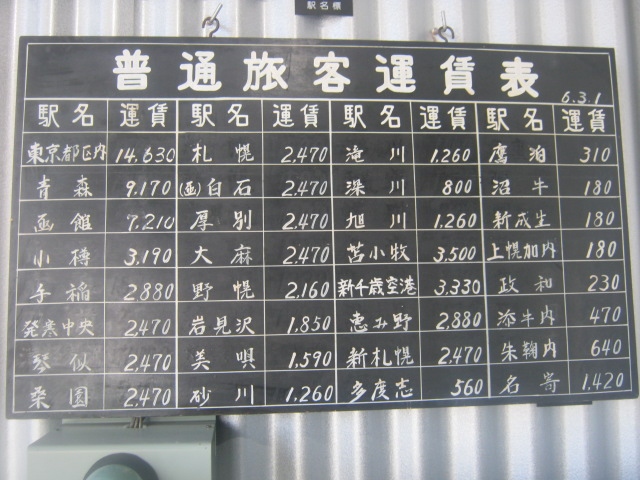 駅名標
普通旅客運賃表
6.3.1
駅名 運賃 駅名 運賃 駅名 運賃 駅名 運賃
東京都区内 14,630 札幌 2,470 滝川 1,260 鷹泊 310
青森 9,170 (函)白石 2,470 深川 800 沼牛 180
函館 7,210 厚別 2,470 旭川 1,260 新成生 180
小樽 3,190 大麻 2,470 苫小牧 3,500 上幌加内 180
手稲 2880 野幌 2,160 新千歳空港 3,330 政和 230
発寒中央 2470 岩見沢 1,850 恵み野 2,880 添牛内 470
琴似 2,470 美唄 1,590 新札幌 2,470 朱鞠内 640
桑園 2,470 砂川 1,260 多度志 560 名寄 1,420